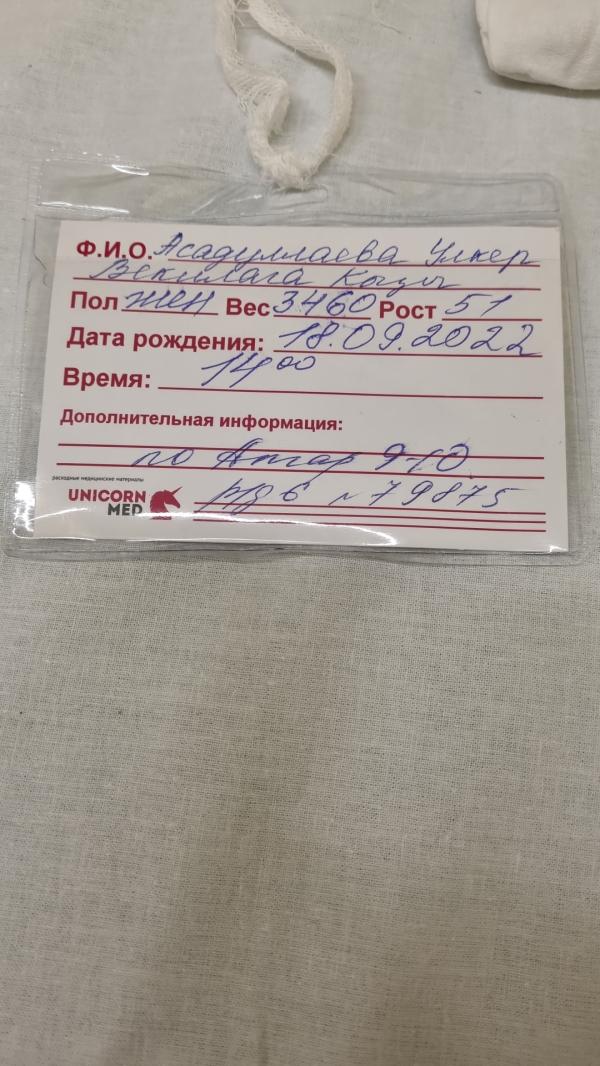 Ф.И.О. Асадуллаева Улкер
Векилага Кызы
Пол жен Вес 3460 Рост 51
Дата рождения: 18.09.2022
Время: 14 00
Дополнительная информация:
по Апгар 9-10
расходные медицинские материалы
UNICORN
MED
р/д 6 N 79875